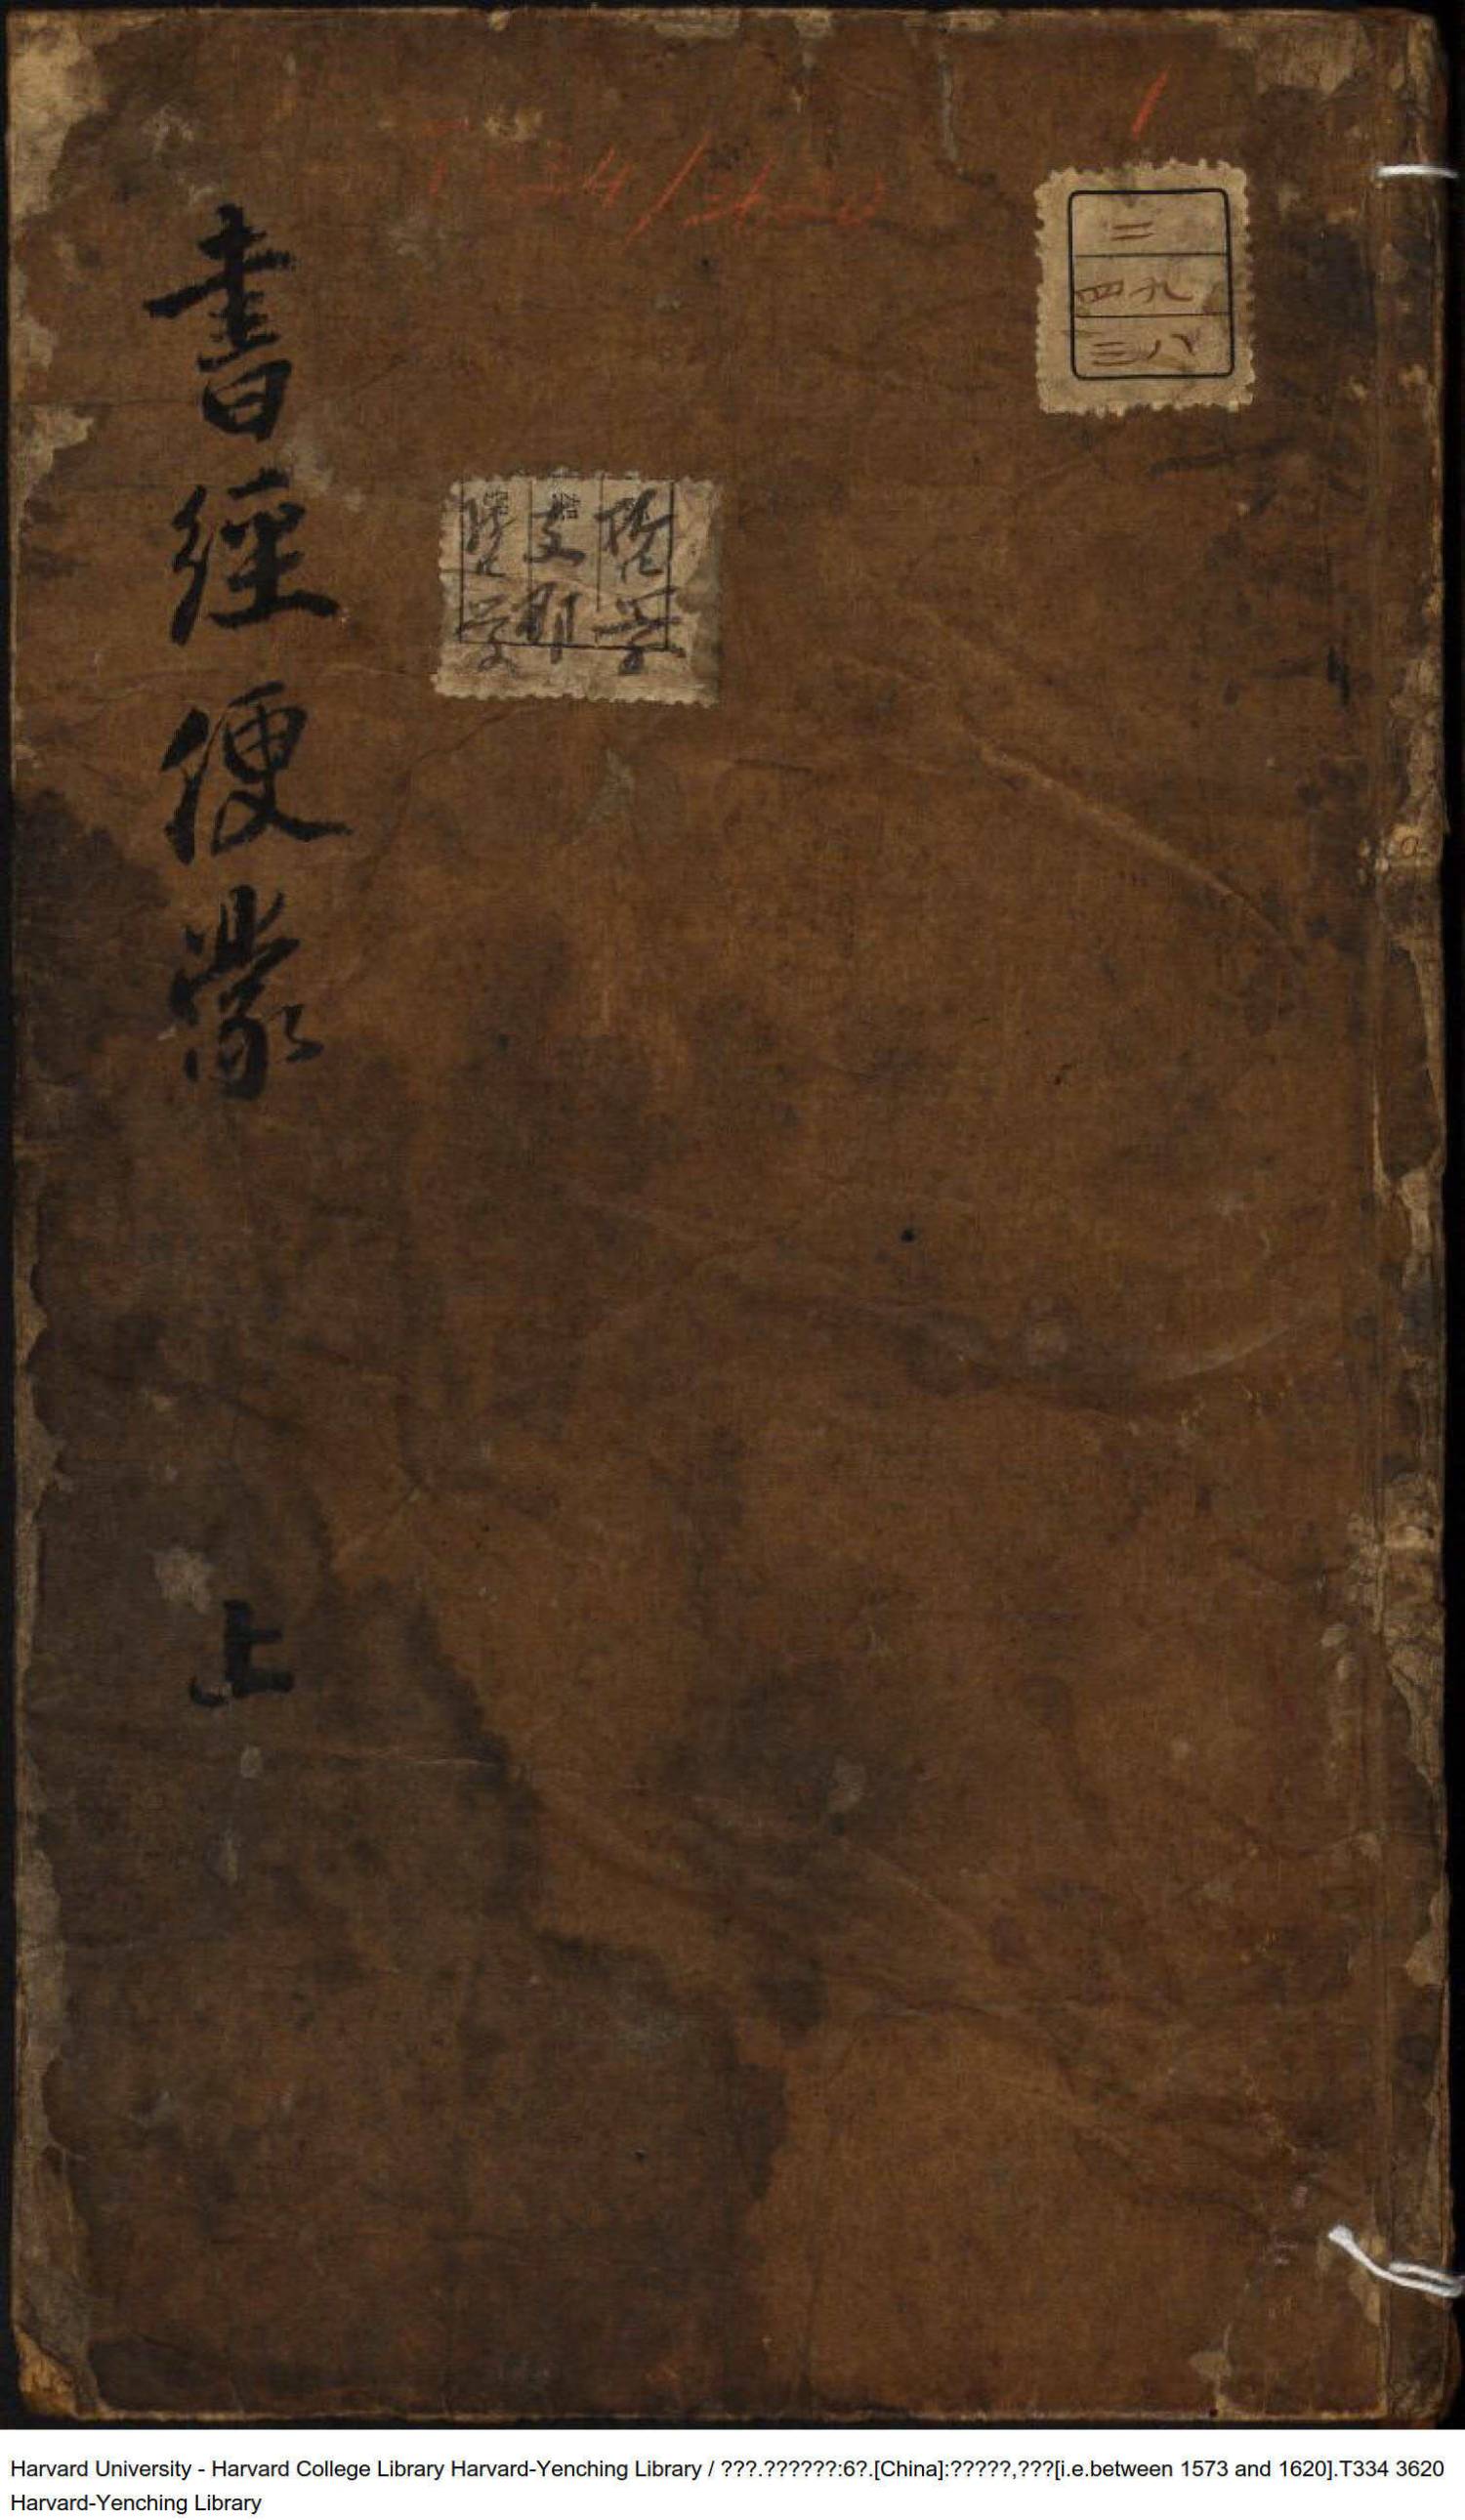 書經便蒙
上
1
二
四九
三八
Harvard University - Harvard College Library Harvard-Yenching Library / ???.??????:6?.[China]:?????,???[i.e.between 1573 and 1620].T334 3620
Harvard-Yenching Library